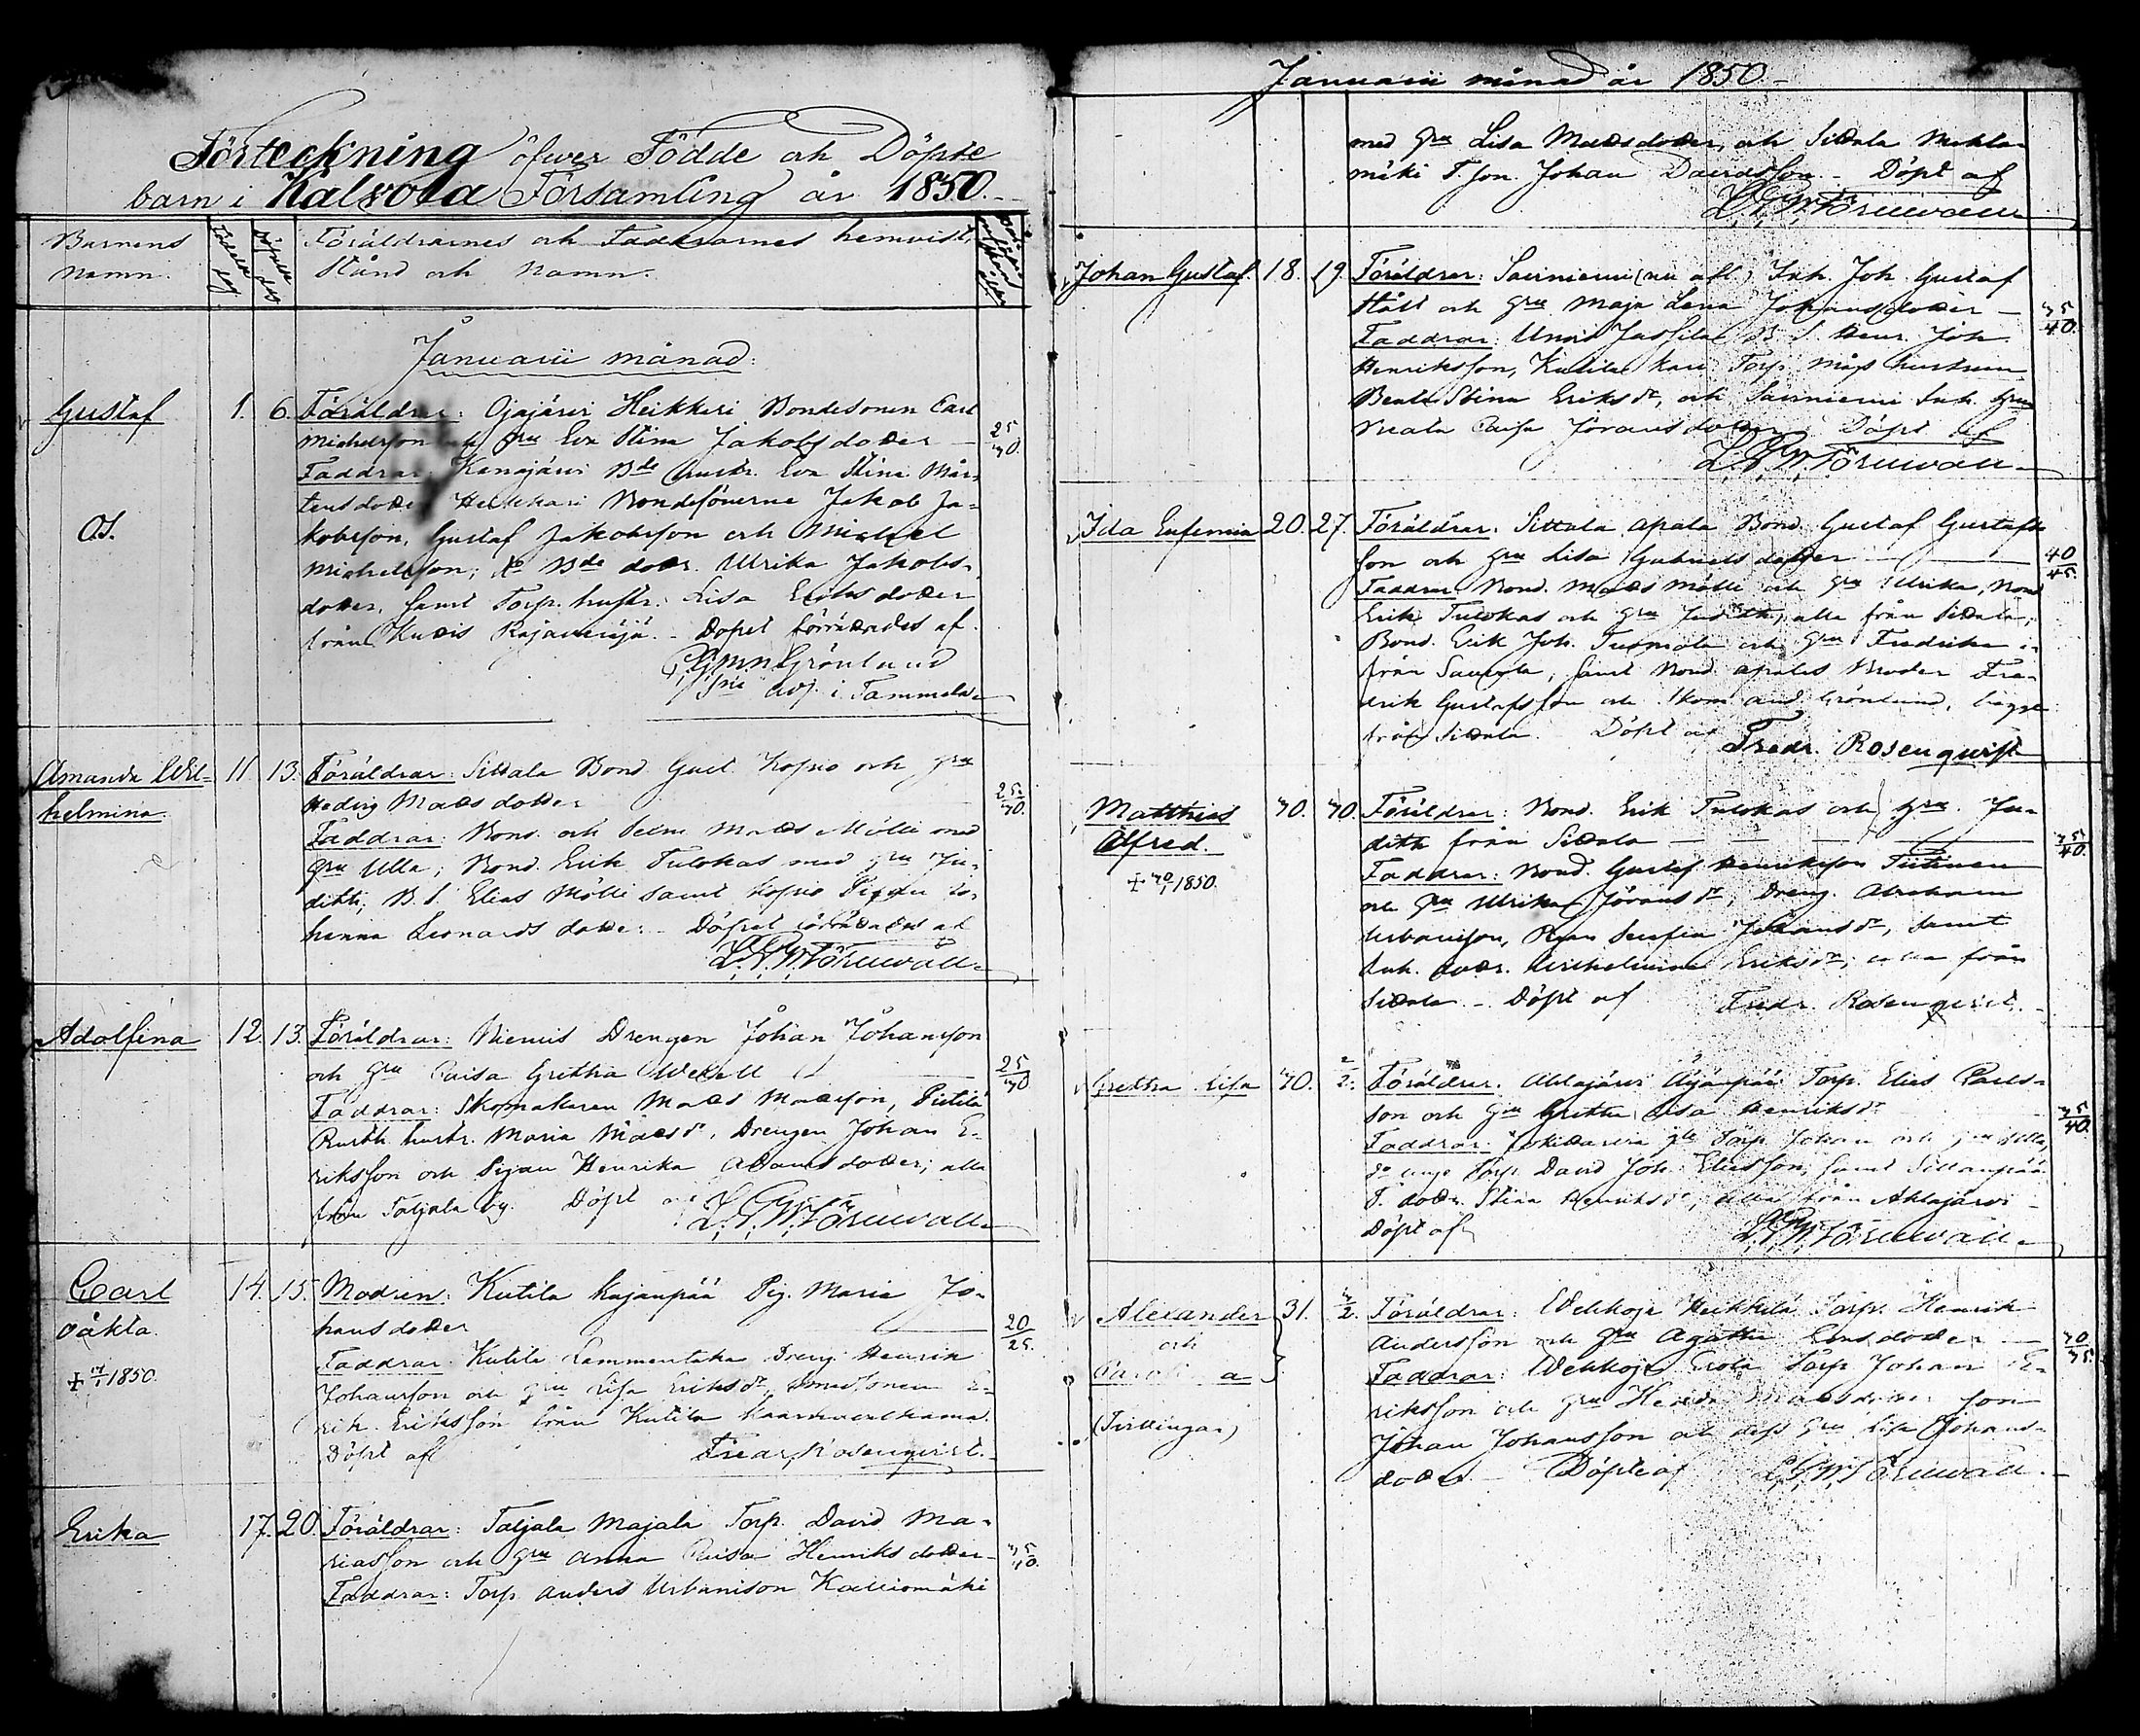 Förteckning öfwer Födde och Döpte
barn i Kalvola Församling år 1850.
Barnens
Namn.
Födelse
dag
Döpelse
dag
Föräldrarnes och Faddrarnes hemvist,
Stånd och Namn.
Januarii månad.
Gustaf
1. 6. Föräldrar: Ojajärvi Heikkeri Bondesonen Carl
Michelsson och hru Eva Stina Jakobsdotter
25
30.
Faddrar: Kanajärvi Bde hustr. Eva Stina Mår-
tensdotter Heikkari Bondesönerne Jakob Ja-
O.S.
kobsson, Gustaf Jakobsson och Michel
Michelsson; Bde dottr. Ulrika Jakobs-
dotter, samt Torp. hustr. Lisa Eriksdotter
från Kutis Rajamäijä. - Döpet förrättades af
Grönlund
adj. i Tammela
Amanda Wil-
helmina.
11 13. Föräldrar: Sittala Bond. Gust. Kopio och hru
Hedvig Mattsdotter
25
30.
Faddrar: Bond. och Matts Mölli med
hru Ulla, Bond. Erik Tulokas med hru Ju-
dith; B. S. Elias Mölli samt Kopio Pigan Jo-
hanna Leonardsdotter. - Döpet förrättadt af
L. G. W. Törnwall
Adolfina
12. 13. Föräldrar: Niemis Drengen Johan Johansson
och hru Caisa Gretha Wekell
25
30
Faddrar: Skomakaren Matts Mattsson, Pietilä
Rusth. hustr. Maria Mattsdr, Drengen Johan E-
riksson och Pigan Henrika Adamsdotter; alla
från Taljala by. Döpt af L. G. W. Törnwall
Carl
oäkta.
✝ 17/1 1850.
14. 15. Modren: Kutila Kajanpää Pig. Maria Jo-
hansdotter
20
25.
Faddrar: Kutila Lammentaka Dreng. Henrik
Johansson och hru Lisa Eriksdr, E-
rik Eriksson från Kutila
Döpt af Fredr. Rosenqvist.
Erika
17. 20. Föräldrar: Taljala Majala Torp. David Ma-
riasson och hru Anna Caisa Henriksdotter
35
40.
Faddrar: Torp. Anders Urbanison Kalliomäki
Januarii månad år 1850.
med hru Lisa Mattsdotter, och Sittala Makla-
mäki T. son. Johan Davidsson. - Döpt af
L. G. W. Törnwall
Johan Gustaf.
18. 19. Föräldrar: Sauniemi (nu afl.) Inh. Joh. Gustaf
Ståll och hru Maja Lena Johansdotter
35
40.
Faddrar: Unnis Jussila B. S. Henr. Joh.
Henriksson, Kutila Kari Torp. mågs hustrun
Beata Stina Eriksdr, och Sauniemi Inh. hru
Caisa Jöransdotter. Döpt af
L. G. W. Törnwall
Ida Eufemia
20. 27. Föräldrar: Sittala Apala Bond. Gustaf Gustafs-
son och hru Lisa Gabrielsdotter
40
45.
Faddrar: Bond. Matts Mölli och hru Ulrika, Bond.
Erik Tulokas och hru Judith, alla från Sittala;
Bond. Erik Joh. Tuomola och hru Fredrika
från Sauvala, samt Bond. Apalas Broder Fre-
drik Gustafsson och Skom. And. Grönlund, begge
från Sittala. Döpt af Fredr. Rosenqvist
Matthias
Alfred.
✝ 30/1 1850.
30. 30. Föräldrar: Bond. Erik Tulokas och hru Ju-
dith från Sittala
35
40.
Faddrar: Bond. Gustaf Henriksson Tiitinen
och hru Ulrika Jöransdr, Dreng. Abraham
Urbanisson, Pigan Serafia Johansdr, samt
Inh. dottr. Wilhelmina Eriksdr; alla från
Sittala. - Döpt af Fredr. Rosenqvist.
Gretha Lisa
30. 2/2. Föräldrar: Ahlajärvi Äijänpää Torp. Elias Carls-
son och hru Gretha Lisa Henriksdr
35
40.
Faddrar: gle Torp. Johan och hru Ulla,
do unge Torp. David Joh. Eliasson, samt Sillanpää
T. dottr. Stina Henriksdr, alla från Ahlajärvi
Döpt af L. G. W. Törnwall
Alexander
och
a
(Tvillingar)
31. 3/2. Föräldrar: Wekkoja Heikkilä Torp. Henrik
Andersson och hru Agatha dotter
30
35.
Faddrar: Wekkoja Erola Torp. Johan E-
riksson och hru Hedda Mattsdotter son
Johan Johansson och dess hru Lisa Johans-
dotter. - Döpte af L. G. W. Törnwall.